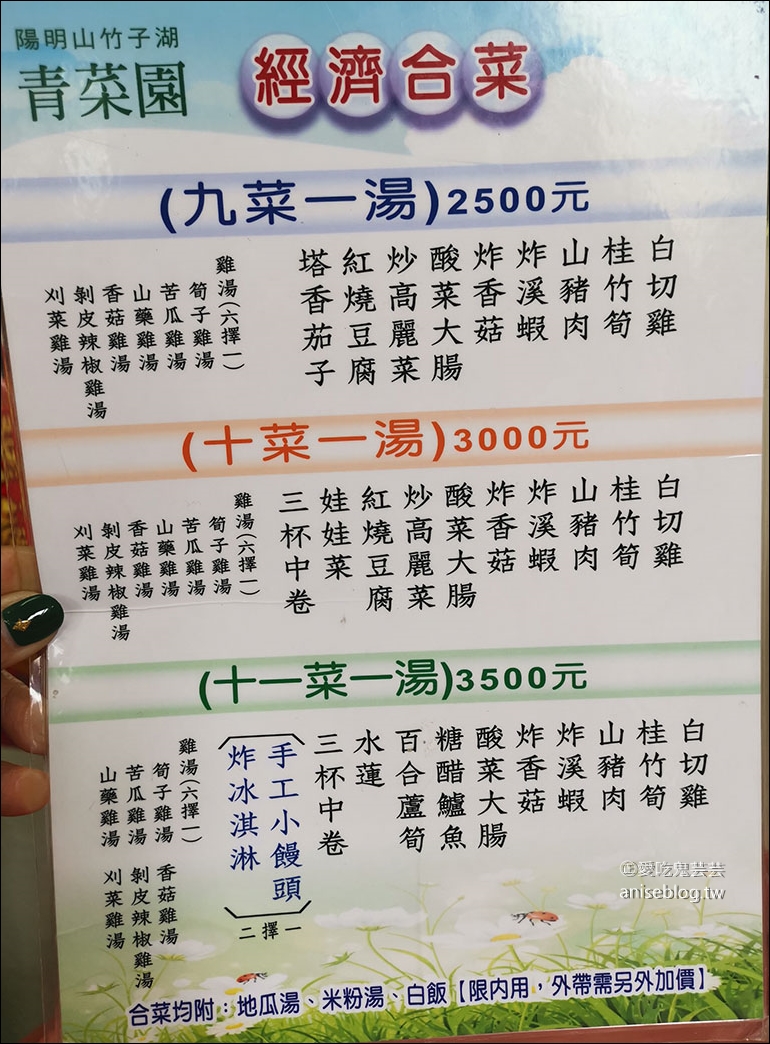 陽明山竹子湖
青菜園
經濟合菜
(九菜一湯)2500元
白切雞
桂竹筍
山豬肉
炸溪蝦
炸香菇
酸菜大腸
炒高麗菜
紅燒豆腐
塔香茄子
雞湯(六擇一)
筍子雞湯
苦瓜雞湯
山藥雞湯
香菇雞湯
剝皮辣椒雞湯
刈菜雞湯
(十菜一湯)3000元
白切雞
桂竹筍
山豬肉
炸溪蝦
炸香菇
酸菜大腸
炒高麗菜
紅燒豆腐
娃娃菜
三杯中卷
雞湯(六擇一)
筍子雞湯
苦瓜雞湯
山藥雞湯
香菇雞湯
剝皮辣椒雞湯
刈菜雞湯
(十一菜一湯)3500元
白切雞
桂竹筍
山豬肉
炸溪蝦
炸香菇
酸菜大腸
糖醋鱸魚
百合蘆筍
水蓮
三杯中卷
手工小饅頭
炸冰淇淋
二擇一
雞湯(六擇一)
筍子雞湯
苦瓜雞湯
山藥雞湯
香菇雞湯
剝皮辣椒雞湯
刈菜雞湯
@愛吃鬼芸芸
aniseblog.tw
合菜均附：地瓜湯、米粉湯、白飯【限內用，外帶需另外加價】